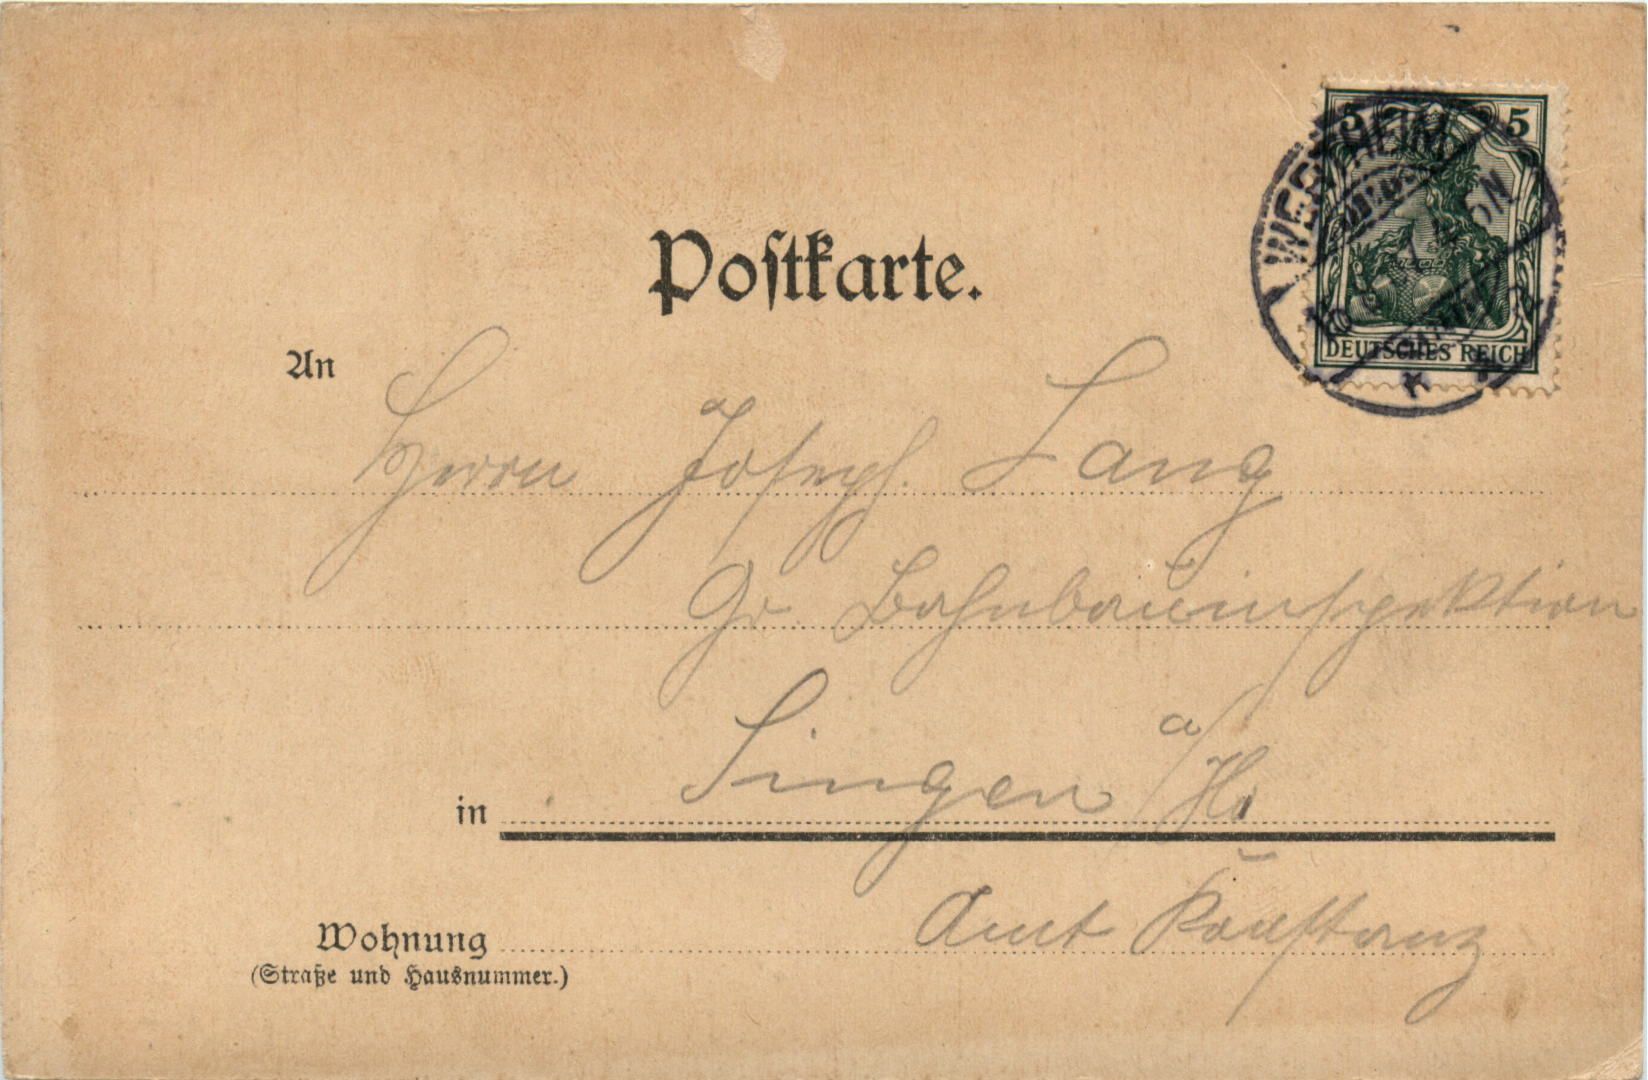 5 5
DEUTSCHES REICH
WERTHEIM
5-6N
Postkarte.
An
Herrn Joseph Lang
Gr. Bahnbauinspektion
in Singen a/Ho
Amt Konstanz
Wohnung
(Straße und Hausnummer.)